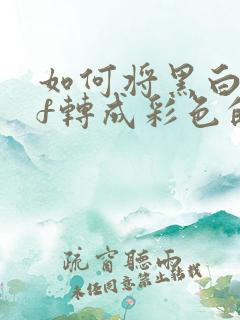 如何將黑白
f轉成彩色的
疏窗聽雨
未经同意禁止转载